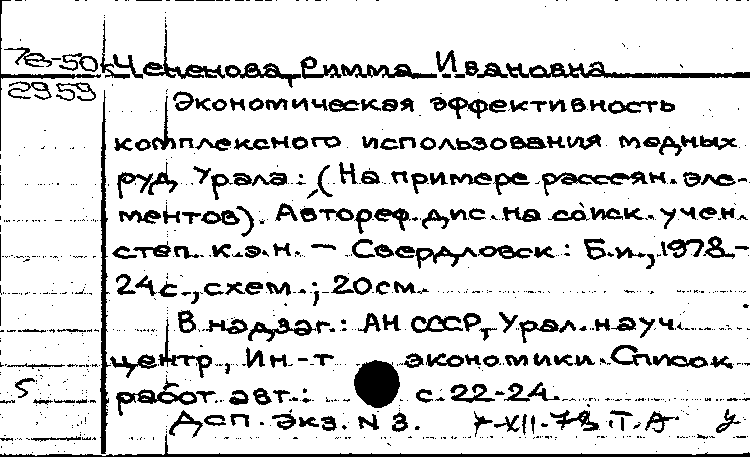 78-50
2959
Чененова, Римма Ивановна
Экономическая эффективность
комплексного использования медных
руд Урала: (На примере рассеян. эле-
ментов). Автореф. дис. на соиск. учен.
степ. к.э.н. — Свердловск: Б.и., 1978-
24с., схем.; 20см.
В надзаг.: АН СССР, Урал. науч.
центр, Ин-т экономики. Список
5 работ авт.: с. 22-24.
Доп. экз. N 3. XII-78 Т.А У